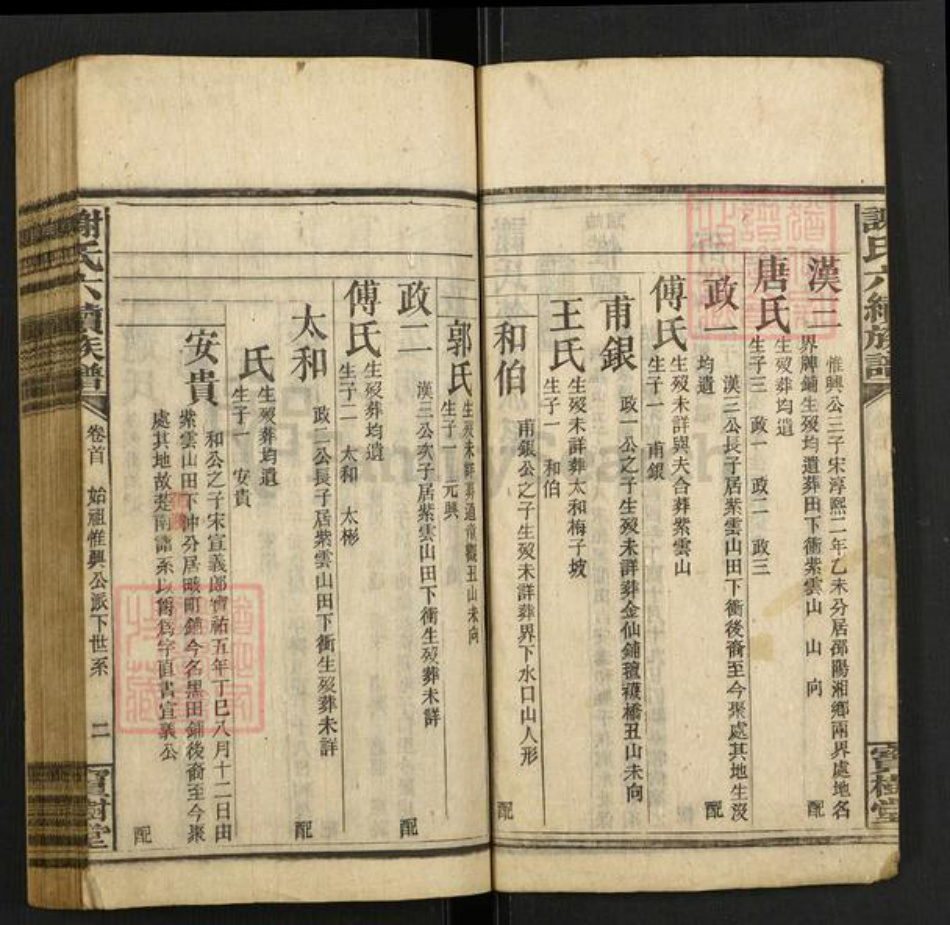 謝氏六續族譜
寶樹堂
漢三
惟興公三子宋淳熙二年乙未分居邵陽湘鄉兩界處地名
界牌鋪生歿均遺葬田下衝紫雲山 山 向
配
唐氏
生歿葬均遺
生子三 政一 政二 政三
政一
漢三公長子居紫雲山田下衝後裔至今聚處其地生沒
均遺
配
傅氏
生歿未詳與夫合葬紫雲山
生子一 甫銀
甫銀
政一公之子生歿未詳葬金仙鋪橋丑山未向
王氏
生歿未詳葬太和梅子坡
生子一 和伯
和伯
甫銀公之子生歿未詳葬界下水口山人形
配
郭氏
生歿未詳葬道童觀丑山未向
生子一 元興
政二
漢三公次子居紫雲山田下衝生歿葬未詳
配
傅氏
生歿葬均遺
生子二 太和 太彬
太和
政二公長子居紫雲山田下衝生歿葬未詳
配
氏
生歿葬均遺
生子一 安貴
安貴
和公之子宋宣義郎寶祐五年丁巳八月十二日由
紫雲山田下沖分居町鎮今名黑田鋪後裔至今聚
處其地故楚南譜系以爲字直書宣義公
配
謝氏六續族譜
卷首 始祖惟興公派下世系 二
寶樹堂